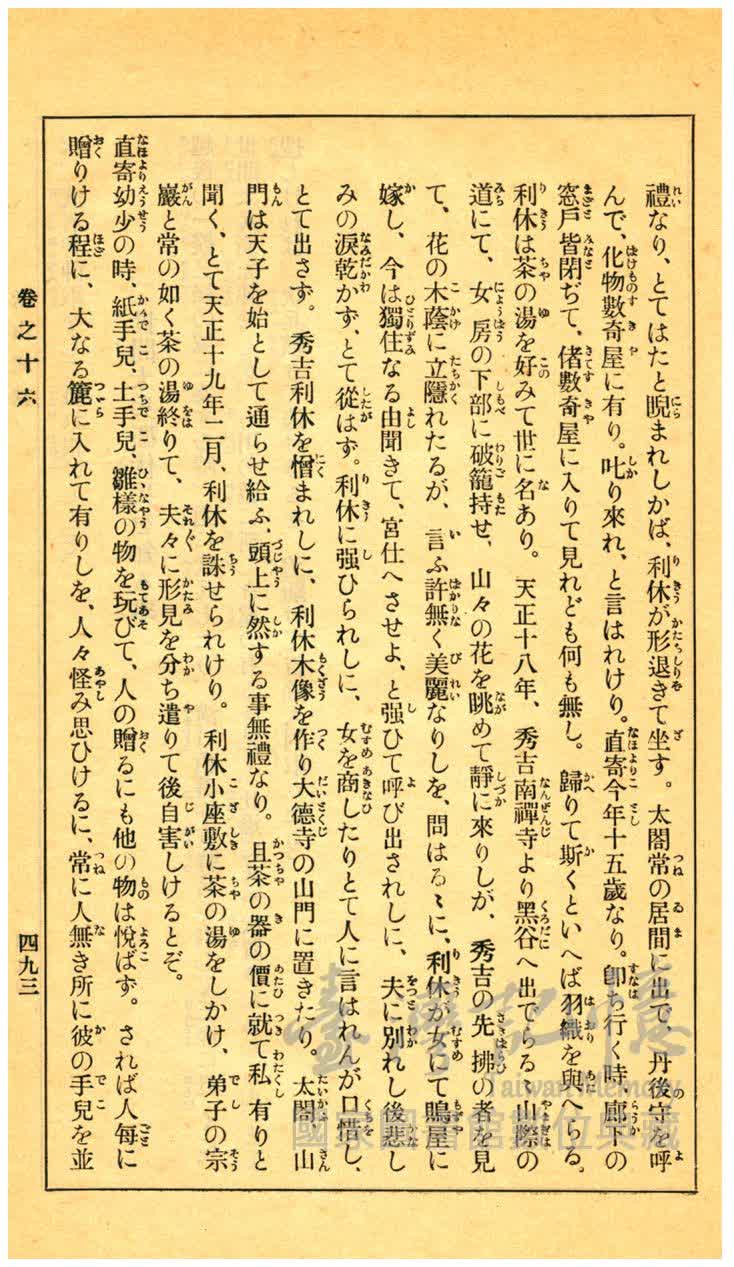 禮なり、とてはたと睨まれしかば、利休が形退きて坐す。太閤常の居間に出で、丹後守を呼
んで、化物數奇屋に有り。叱り來れ、と言はれけり。直寄今年十五歳なり。卽ち行く時、廊下の
窓戸皆閉ぢて、偖數奇屋に入りて見れども何も無し。歸りて斯くといへば羽織を與へらる。
利休は茶の湯を好みて世に名あり。天正十八年、秀吉南禪寺より黑谷へ出でらるゝ山際の
道にて、女房の下部に破籠持せ、山々の花を眺めて靜に來りしが、秀吉の先拂の者を見
て、花の木蔭に立隱れたるが、言ふ許無く美麗なりしを、問はるゝに、利休が女にて鵙屋に
嫁し、今は獨住なる由聞きて、宮仕へさせよ、と强ひて呼び出されしに、夫に別れし後悲し
みの淚乾かず、とて從はず。利休に强ひられしに、女を商したりとて人に言はれんが口惜し、
とて出さず。秀吉利休を憎まれしに、利休木像を作り大德寺の山門に置きたり。太閤、山
門は天子を始として通らせ給ふ、頭上に然する事無禮なり。且茶の器の價に就て私有りと
聞く、とて天正十九年二月、利休を誅せられけり。利休小座敷に茶の湯をしかけ、弟子の宗
巖と常の如く茶の湯終りて、夫々に形見を分ち遣りて後自害しけるとぞ。
直寄幼少の時、紙手兒、土手兒、雛樣の物を玩びて、人の贈るにも他の物は悅ばず。されば人每に
贈りける程に、大なる簏に入れて有りしを、人々怪み思ひけるに、常に人無き所に彼の手兒を並
卷之十六
四九三
臺灣記憶
Taiwan Memory
國家圖書館數位典藏